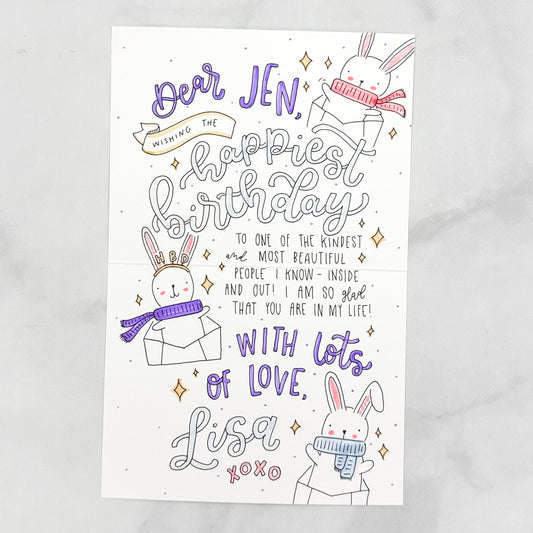 Dear JEN,
WISHING THE
happiest
birthday
TO ONE OF THE KINDEST
and MOST BEAUTIFUL
PEOPLE I KNOW - INSIDE
AND OUT! I AM SO glad
THAT YOU ARE IN MY LIFE!
HBD
WITH lots
OF LOVE,
Lisa
XOXO